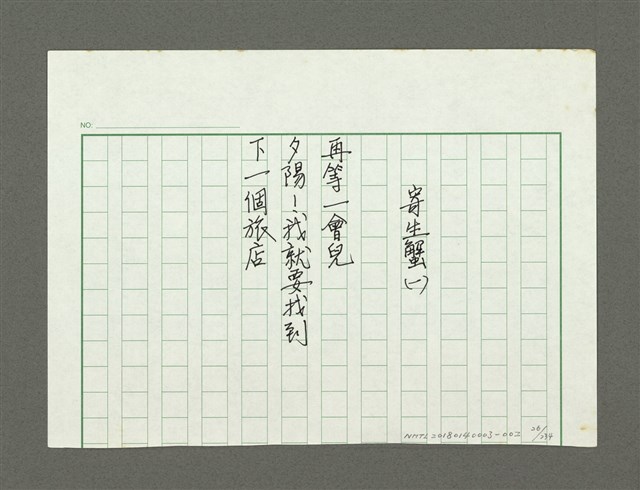 NO:
寄生蟹(一)
再等一會兒
夕陽!我就要找到
下一個旅店
NMTL20180140003-002
26/234